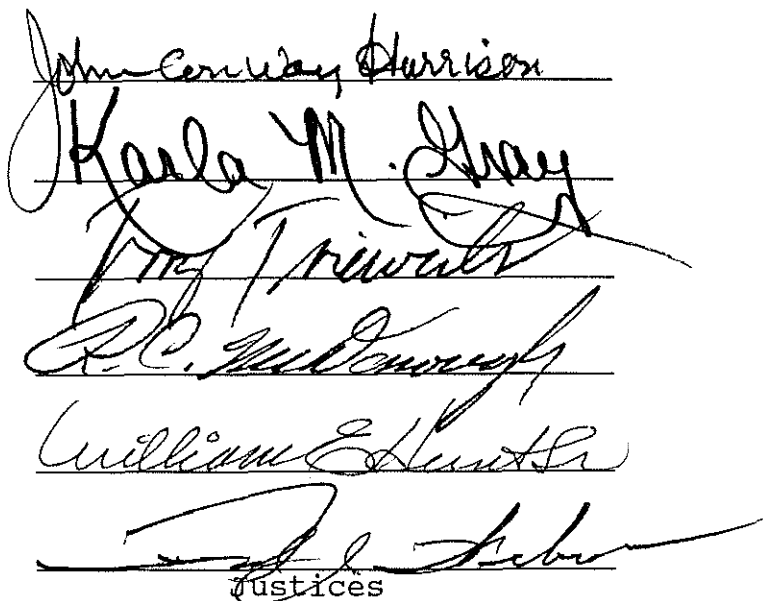 John Conway Harrison
Karla M. Gray
Trieweiler
R. C. McDonough
William E Hunt Sr
Fred J. Weber
Justices